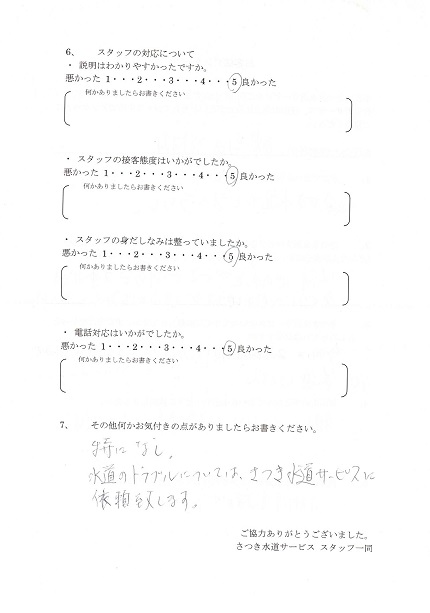 6、 スタッフの対応について
・ 説明はわかりやすかったですか。
悪かった 1・・・2・・・3・・・4・・・5 良かった
何かありましたらお書きください
・ スタッフの接客態度はいかがでしたか。
悪かった 1・・・2・・・3・・・4・・・5 良かった
何かありましたらお書きください
・ スタッフの身だしなみは整っていましたか。
悪かった 1・・・2・・・3・・・4・・・5 良かった
何かありましたらお書きください
・ 電話対応はいかがでしたか。
悪かった 1・・・2・・・3・・・4・・・5 良かった
何かありましたらお書きください
7、 その他何かお気付きの点がありましたらお書きください。
特になし。
水道のトラブルについては、さつき水道サービスに
依頼致します。
ご協力ありがとうございました。
さつき水道サービス スタッフ一同